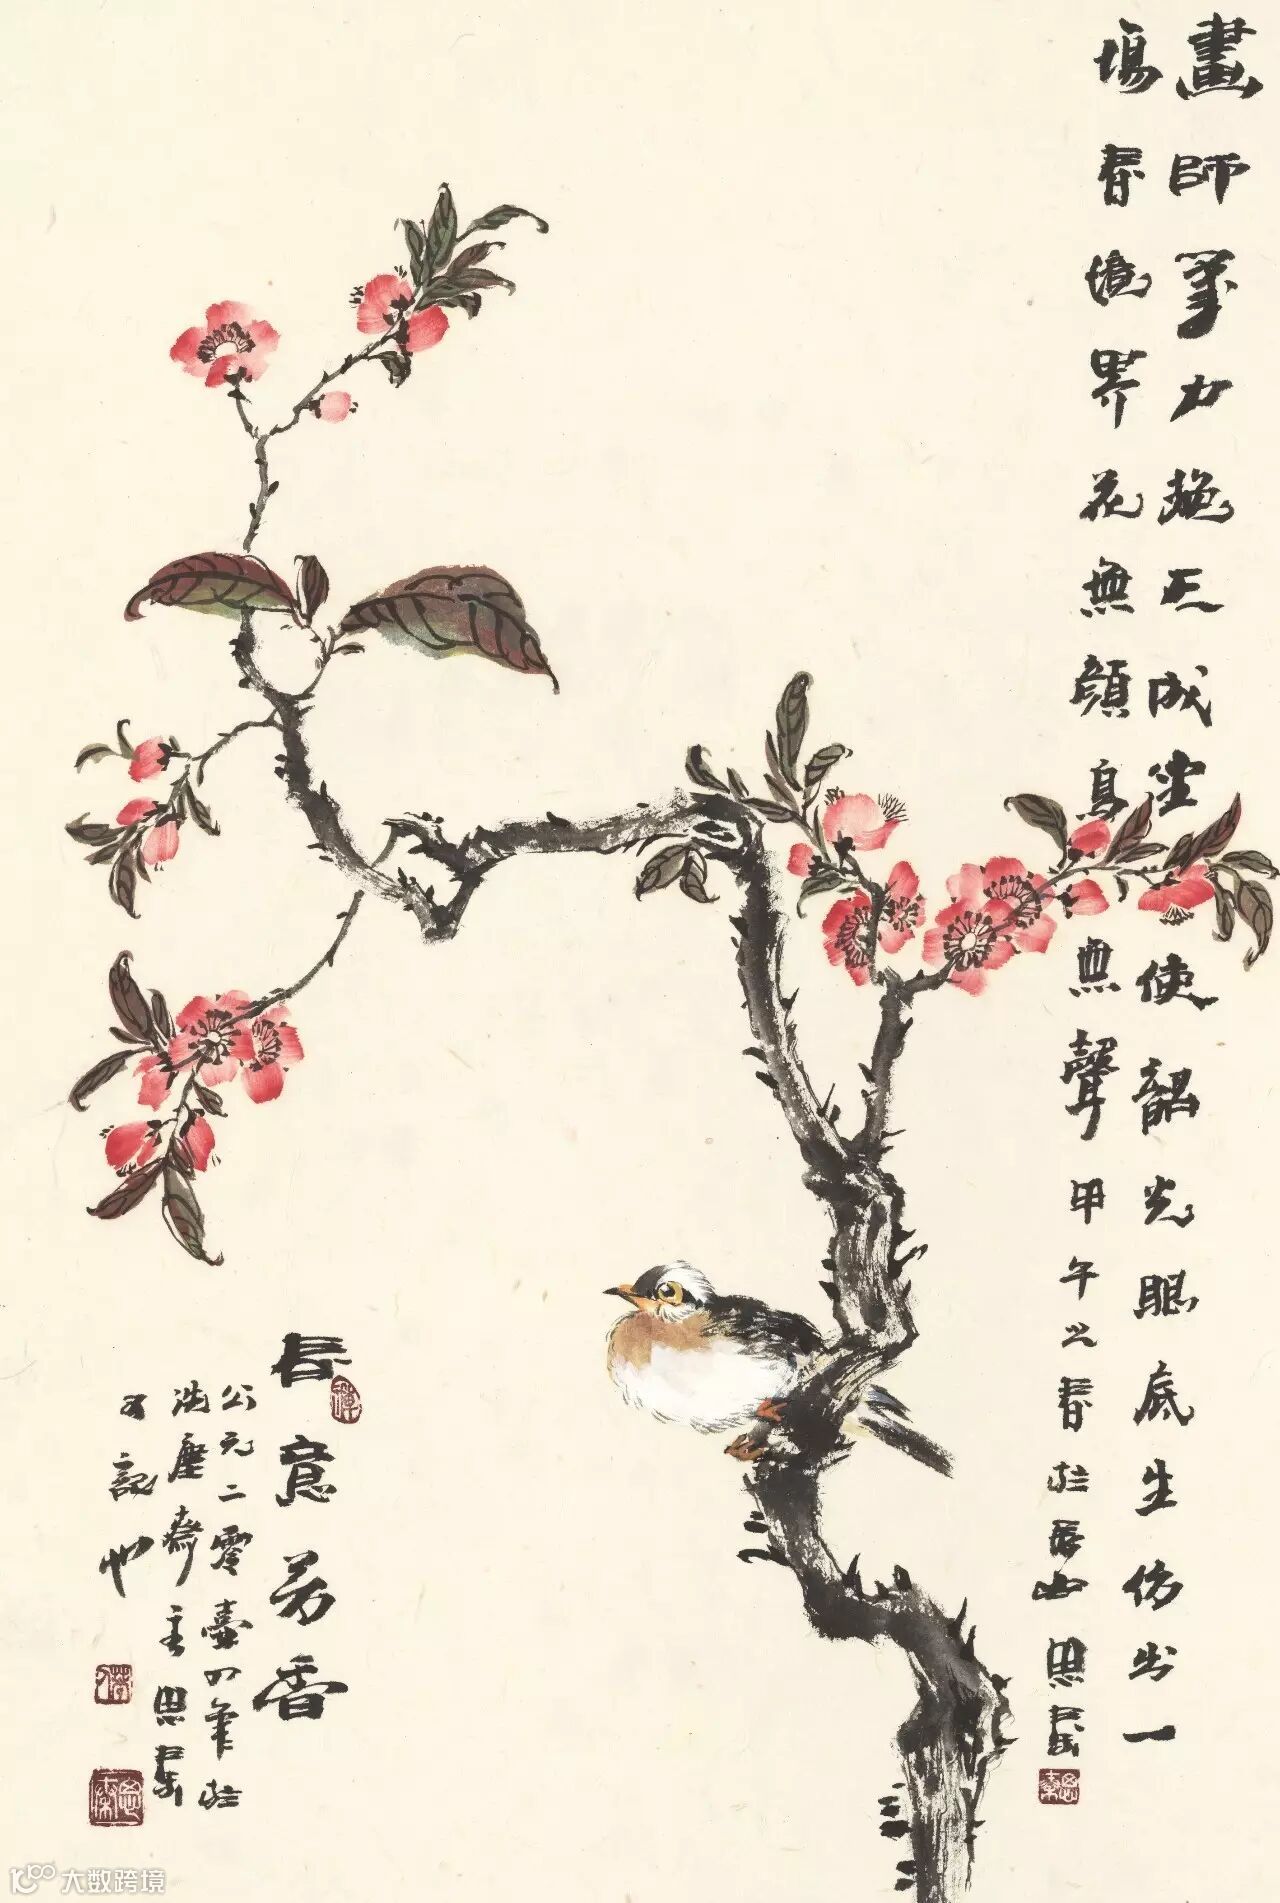 畫師筆力天成坐使韶光眼底生仿出一
場春境界花無顏鳥無聲甲午之春於山思秦
春意芳香
公元二零壹四年於
洗塵齋主思秦
又記也
大数跨境